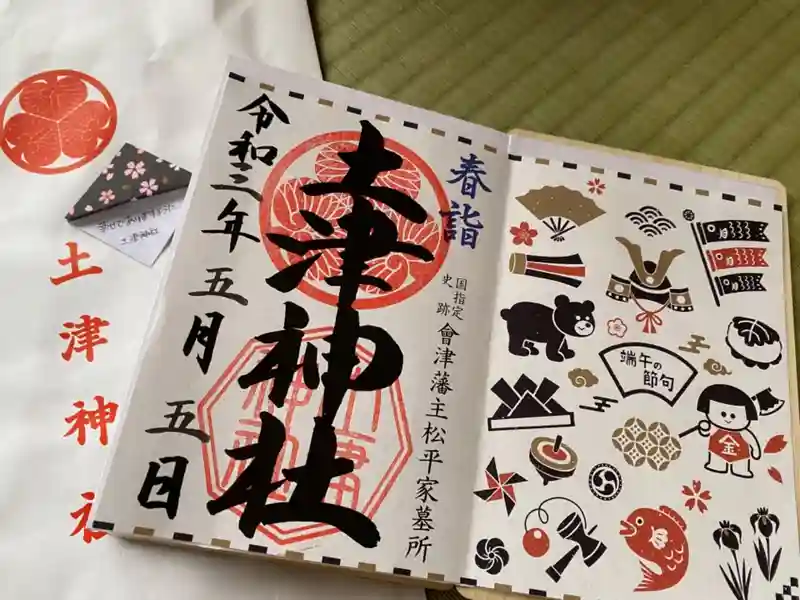 春詣
土津神社
令和三年五月五日
国指定
史跡
會津藩主松平家墓所
端午の
節句
金
土津神社
土津神社